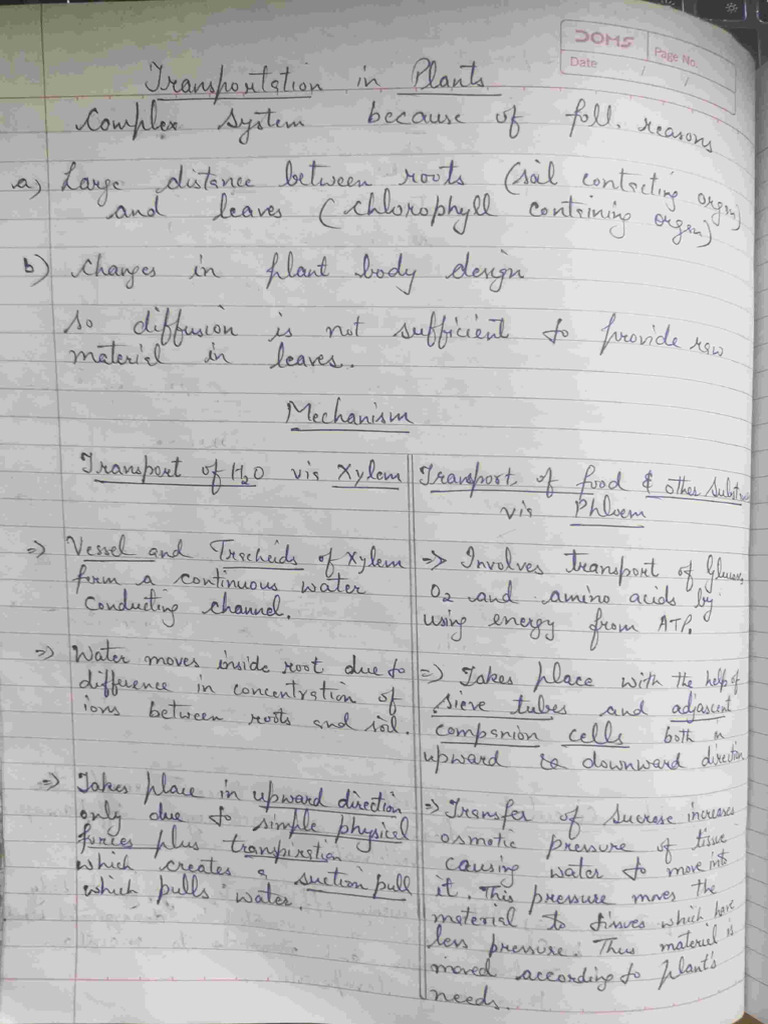 DOMS
Page No.
Date / /
Transportation in Plants
Complex system because of foll. reasons
a) Large distance between roots (soil contacting organ)
and leaves (chlorophyll containing organ)
b) changes in plant body design
so diffusion is not sufficient to provide raw
material in leaves.
Mechanism
Transport of H2O via Xylem
=> Vessel and Tracheids of xylem
form a continuous water
conducting channel.
=> Water moves inside root due to
difference in concentration of
ions between roots and soil.
=> Takes place in upward direction
only due to simple physical
forces plus transpiration
which creates a suction pull
which pulls water.
Transport of food & other
via Phloem
=> Involves transport of Glucose,
O2 and amino acids by
using energy from ATP.
=> Takes place with the help of
sieve tubes and adjascent
companion cells both in
upward & downward direction
=> Transfer of sucrose increases
osmotic pressure of tissue
causing water to move into
it. This pressure moves the
material to tissues which have
less pressure. Thus material is
moved according to plant's
needs.